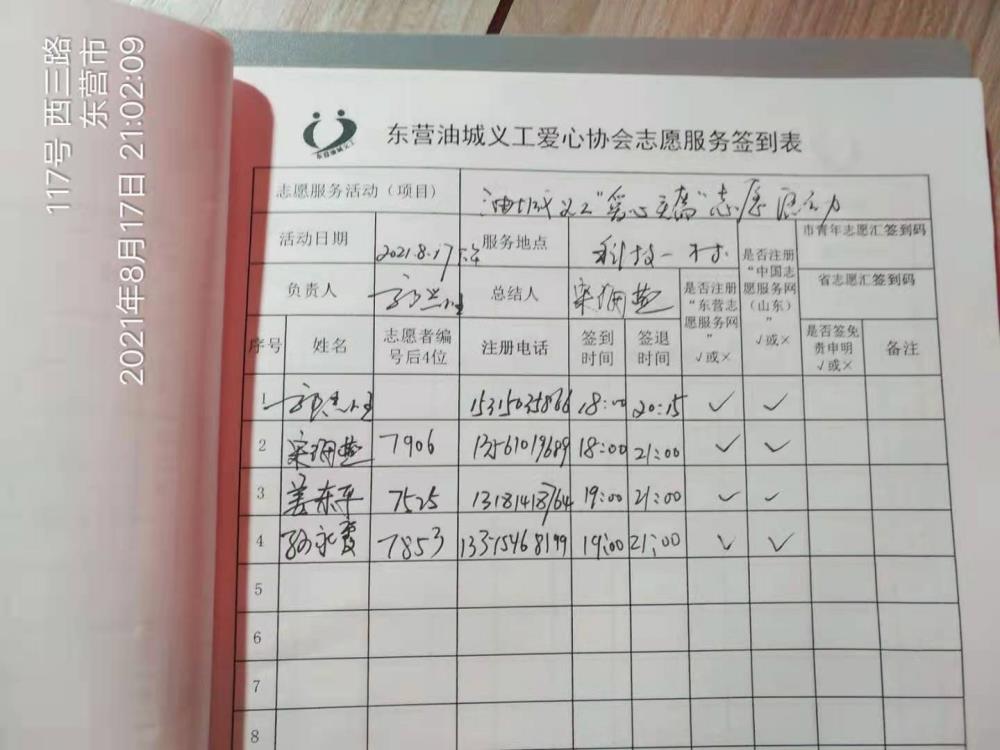 117号 西三路
东营市
2021年8月17日 21:02:09
东营油城义工
东营油城义工爱心协会志愿服务签到表
志愿服务活动（项目） 油城义工"爱心
活动日期 2021.8.17 服务地点 科技一村
负责人 总结人 宋
是否注册"东营志愿服务网" √或×
是否注册"中国志愿服务网（山东）" √或×
市青年志愿汇签到码
省志愿汇签到码
序号 姓名 志愿者编号后4位 注册电话 签到时间 签退时间 是否签免责申明 √或× 备注
1 18:00 20:15 ✓ ✓
2 宋 7906 13561019689 18:00 21:00 ✓ ✓
3 姜东平 7525 13181418764 19:00 21:00 ✓ ✓
4 孙永霞 7853 13375468199 19:00 21:00 ✓ ✓
5
6
7
8